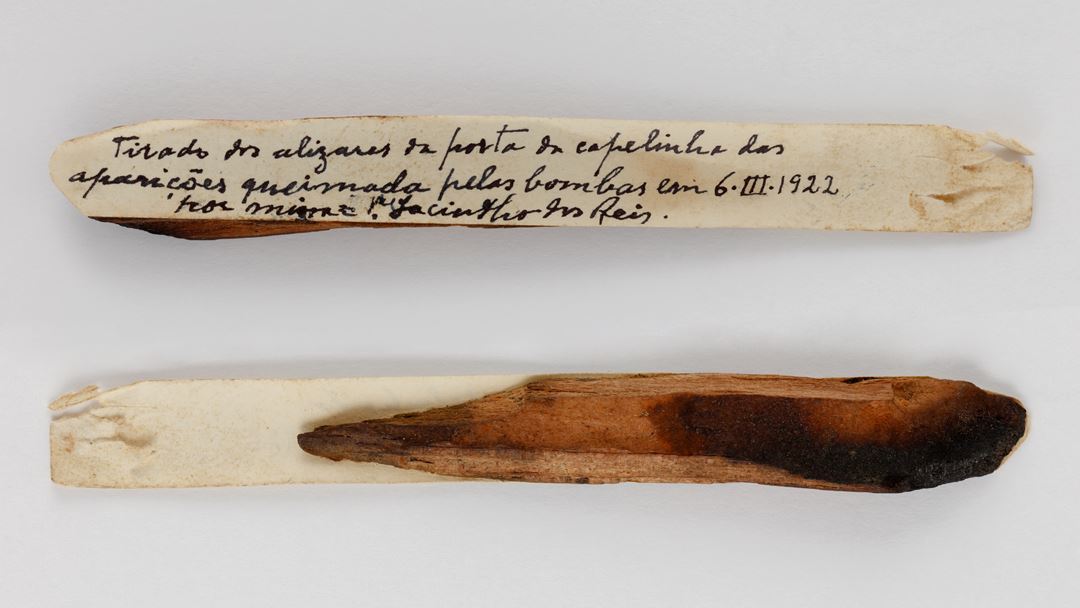 Tirado dos alizares da porta da capelinha das
aparições queimada pelas bombas em 6.III.1922
por mim P.e Jacintho dos Reis.